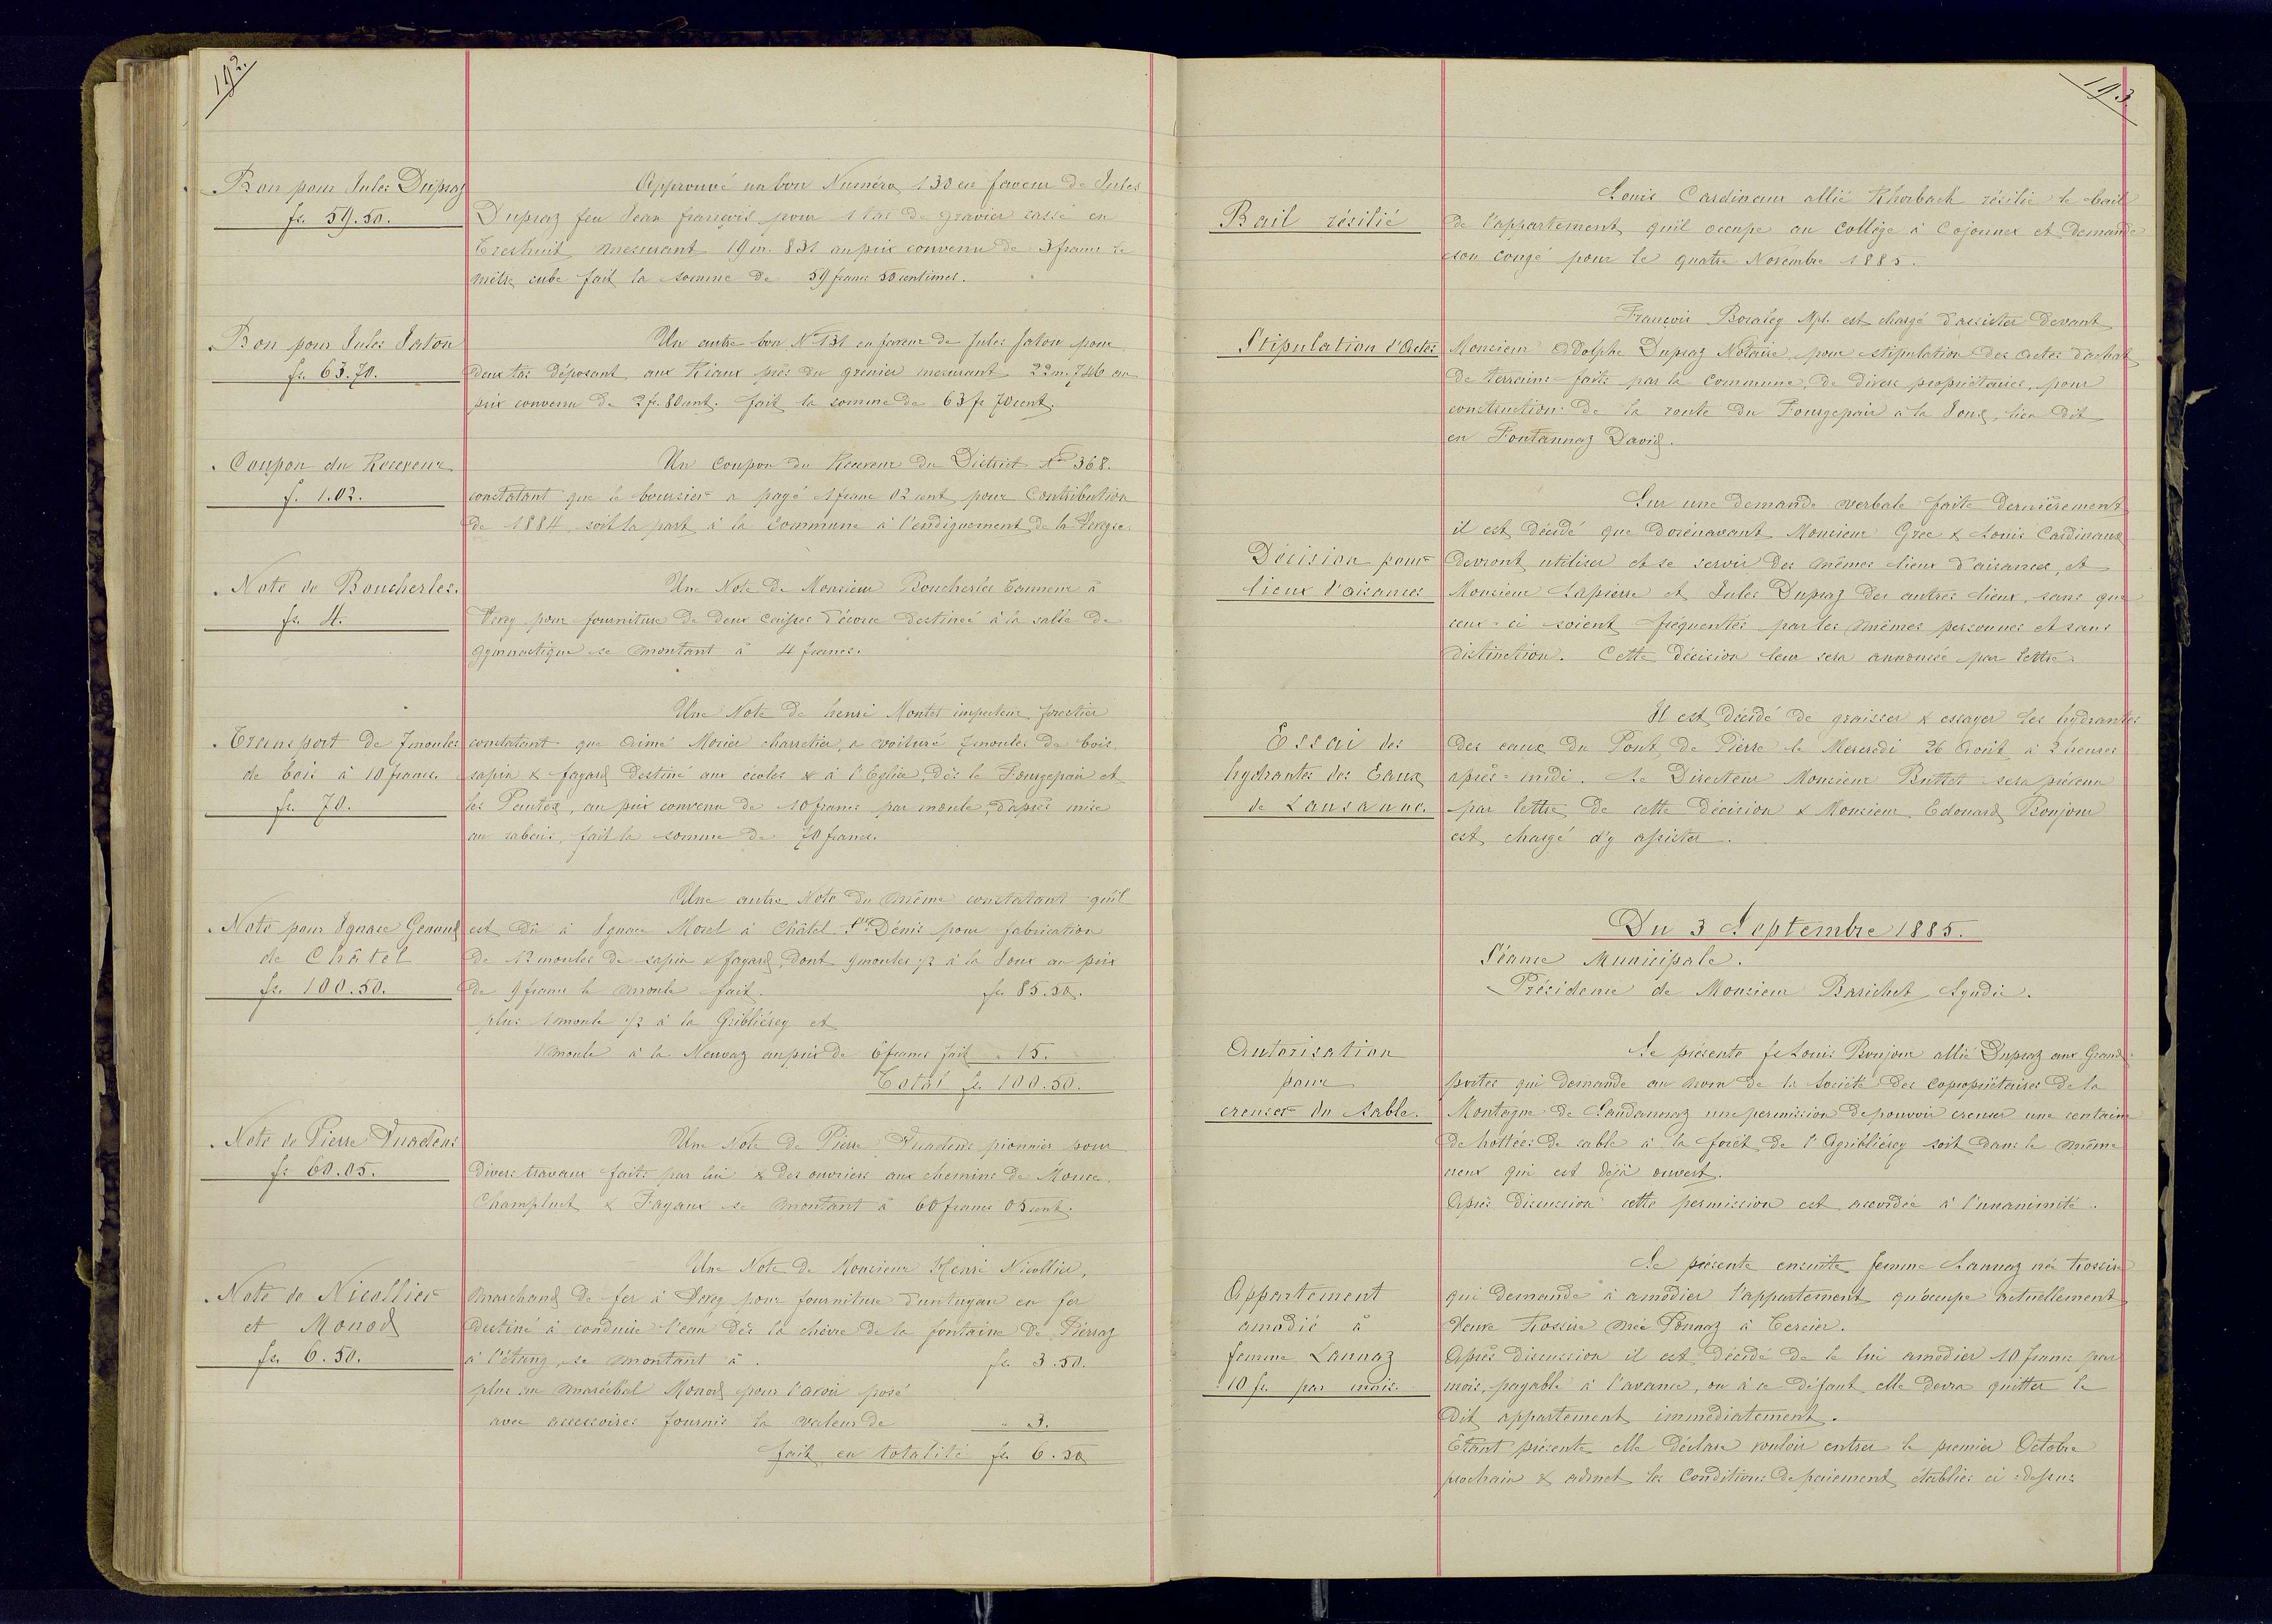 192.
Bon pour Jules Dupraz
fr. 59.50.
Approuvé un bon Numéro 130 en faveur de Jules
Dupraz feu Jean françois pour 1 tas de gravier cassé en
mesurant 19 m. 831 au prix convenu de 3 francs le
mètre cube fait la somme de 59 francs 50 centimes.
Bon pour Jules Jaton
fr. 63.70.
Un autre bon No 131 en faveur de Jules Jaton pour
deux tas déposant aux Riaux près du grenier mesurant 22 m. 746 au
prix convenu de 2 fr. 80 cent. fait la somme de 63 fr 70 cent.
Coupon du Receveur
f. 1.02.
Un Coupon du Receveur du District No 368.
constatant que le boursier a payé 1 franc 02 cent pour Contribution
de 1884, soit la part à la Commune à l'endiguement de la Veveyse.
Note de Boucherles.
fr. 4.
Une Note de Monsieur Boucherles tanneur à
Vevey pour fourniture de deux caisses d'écorce destinée à la salle de
gymnastique se montant à 4 francs.
Transport de 7 moules
de bois à 10 francs.
fr. 70.
Une Note de henri Montet inspecteur forestier
constatant que Aimé Morier charretier, a voituré 7 moules de bois
sapin & fayard destiné aux écoles & à l'Eglise, dès le Fourgepair et
les Pautex, au prix convenu de 10 francs par moule, d'après mise
au rabais, fait la somme de 70 francs.
Note pour Ignace Genoud
de Châtel
fr. 100.50.
Une autre Note du même constatant qu'il
est dû à Ignace Morel à Châtel St Dénis pour fabrication
de 12 moules de sapin & fayard, dont 9 moules 1/2 à la Joux au prix
de 9 francs le moule fait. fr. 85.50.
plus 1 moule 1/2 à la Gribliérey et
1 moule à la Neuvaz au prix de 6 francs fait " 15.
Total fr. 100.50.
Note de Pierre Vuadens
fr 60.05.
Une Note de Pierre Vuadens pionnier pour
divers travaux faits par lui & des ouvriers aux chemins de Mouce,
Champluet & Fayaux se montant à 60 francs 05 cent.
Note de Nicollier
et Monod
fr. 6.50.
Une Note de Monsieur Henri Nicollier,
marchand de fer à Vevey pour fourniture d'un tuyau en fer
destiné à conduire l'eau dès la chèvre de la fontaine de Pierraz
à l'étang, se montant à . fr. 3.50.
plus au maréchal Monod pour l'avoir posé
avec accessoires fournis la valeur de " 3.
fait en totalité fr. 6.50
193.
Bail résilié
Louis Cardinaux allié Khorbach résilie le bail
de l'appartement qu'il occupe au Collège à Cojonnex et demande
son congé pour le quatre Novembre 1885.
Stipulation d'Actes
François Bocatey Mpl. est chargé d'assister devant
Monsieur Adolphe Dupraz Notaire, pour stipulation des actes d'achat
de terrains faits par la Commune, de divers propriétaires, pour
construction de la route du Fourgepair à la Joux, lieu dit
en Fontannaz David.
Décision pour
lieux d'aisances
Sur une demande verbale faite dernièrement
il est décidé que dorénavant Monsieur Grec & Louis Cardinaux
devront utiliser et se servir des mêmes lieux d'aisances, et
Monsieur Lapierre et Jules Dupraz des autres lieux, sans que
ceux-ci soient fréquentés par les mêmes personnes et sans
distinction. Cette décision leur sera annoncée par lettre.
Essai des
hydrantes des Eaux
de Lausanne.
Il est décidé de graisser & essayer les hydrantes
des eaux du Pont de Pierre le Mercredi 26 Août à 2 heures
après-midi. Le Directeur Monsieur Buttet sera prévenu
par lettre de cette décision & Monsieur Edouard Bonjour
est chargé d'y assister.
Du 3 Septembre 1885.
Séance Municipale.
Présidence de Monsieur Barichet Syndic.
Autorisation
pour
creuser du Sable.
Se présente fs Louis Bonjour allié Dupraz aux Grand-
portes qui demande au nom de la Société des copropriétaires de la
Montagne de Saudannaz une permission de pouvoir creuser une centaine
de hottées de sable à la forêt de l'Agribliérey soit dans le même
creux qui est déjà ouvert.
Après discussion cette permission est accordée à l'unanimité.
Appartement
amodié à
femme Lannaz
10 fr. par mois.
Se présente ensuite femme Lannaz née Rossire
qui demande à amodier l'appartement qu'occupe actuellement
Veuve Rossire née Ponnaz à Tercier.
Après discussion il est décidé de le lui amodier 10 francs par
mois, payable à l'avance, ou à ce défaut elle devra quitter le
dit appartement immédiatement.
Etant présente elle déclare vouloir entrer le premier Octobre
prochain & admet les Conditions de paiement établies ci-dessus